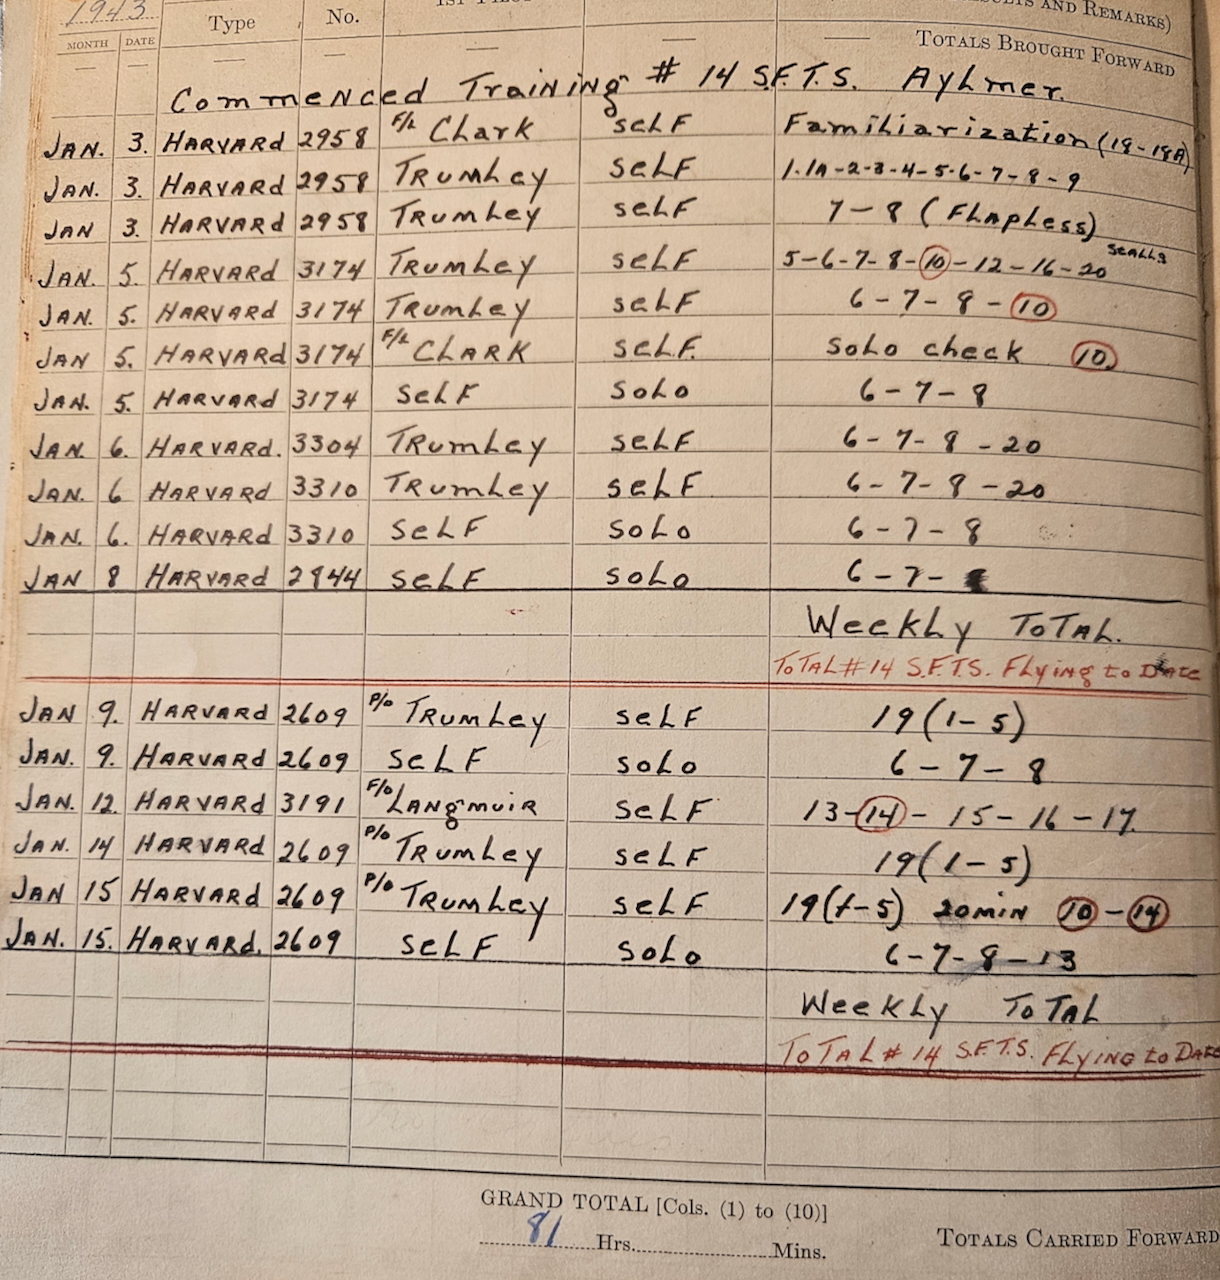 1943
Type No. AND REMARKS)
MONTH DATE TOTALS BROUGHT FORWARD
Commenced Training # 14 S.F.T.S. Aylmer.
JAN. 3. HARVARD 2958 F/L Clark SELF Familiarization (18-18A)
JAN. 3. HARVARD 2958 TRUMLEY SELF 1-1A-2-3-4-5-6-7-8-9
JAN 3. HARVARD 2958 TRUMLEY SELF 7-8 (Flapless)
JAN. 5. HARVARD 3174 TRUMLEY SELF 5-6-7-8-10-12-16-20
JAN. 5. HARVARD 3174 TRUMLEY SELF 6-7-8-10
JAN 5. HARVARD 3174 F/L CLARK SELF. SOLO check 10.
JAN. 5. HARVARD 3174 SELF SOLO 6-7-8
JAN. 6. HARVARD. 3304 TRUMLEY SELF 6-7-8-20
JAN. 6 HARVARD 3310 TRUMLEY SELF 6-7-8-20
JAN. 6. HARVARD 3310 SELF SOLO 6-7-8
JAN 8 HARVARD 2844 SELF SOLO 6-7-
Weekly TOTAL.
TOTAL # 14 S.F.T.S. Flying to Date
JAN 9. HARVARD 2609 P/O TRUMLEY SELF 19(1-5)
JAN. 9. HARVARD 2609 SELF SOLO 6-7-8
JAN. 12. HARVARD 3191 F/O LANGMUIR SELF 13-14-15-16-17.
JAN. 14 HARVARD 2609 P/O TRUMLEY SELF 19(1-5)
JAN 15 HARVARD 2609 P/O TRUMLEY SELF 19(1-5) 20 MIN 10-14
JAN. 15. HARVARD. 2609 SELF SOLO 6-7-8-13
Weekly TOTAL
TOTAL # 14 S.F.T.S. Flying to Date
GRAND TOTAL [Cols. (1) to (10)]
81 Hrs. Mins. TOTALS CARRIED FORWARD